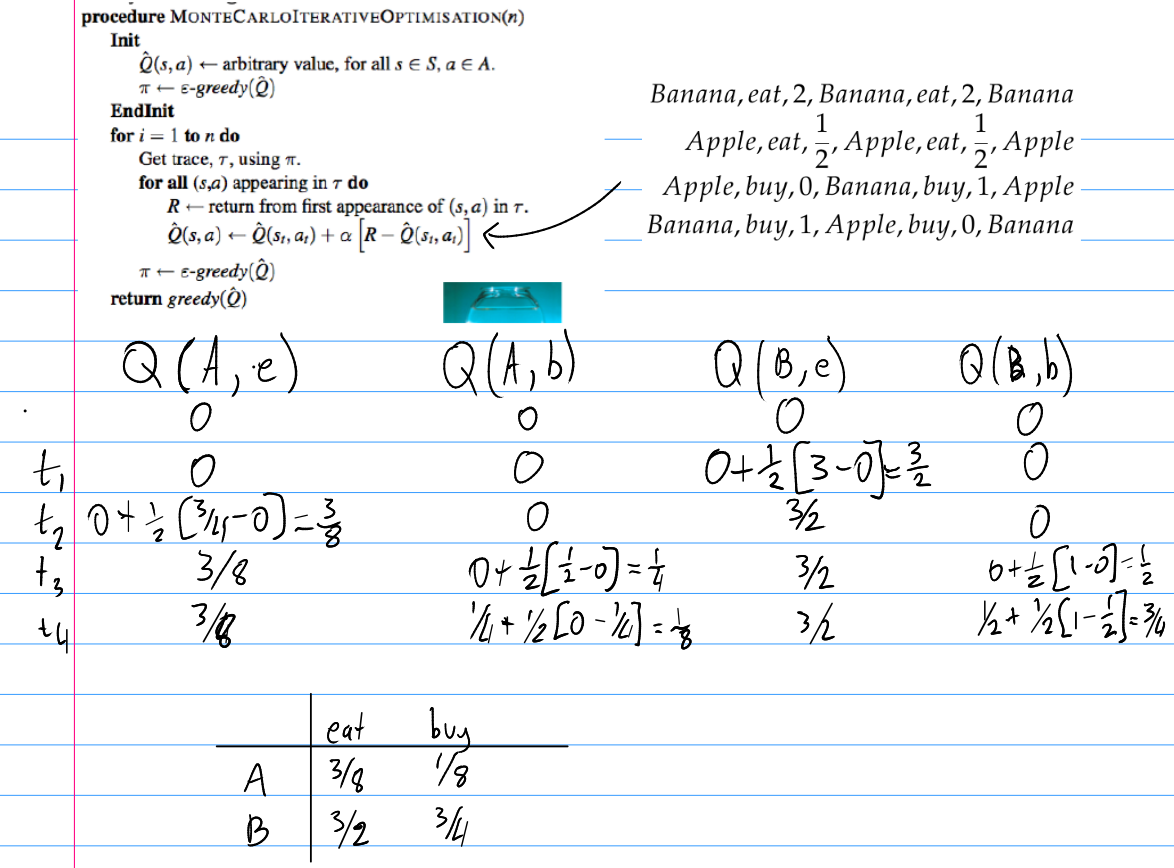 procedure MONTECARLOITERATIVEOPTIMISATION(n)
Init
Q̂(s,a) ← arbitrary value, for all s ∈ S, a ∈ A.
π ← ε-greedy(Q̂)
EndInit
for i = 1 to n do
Get trace, τ, using π.
for all (s,a) appearing in τ do
R ← return from first appearance of (s,a) in τ.
Q̂(s,a) ← Q̂(sₜ,aₜ) + α [R − Q̂(sₜ,aₜ)]
π ← ε-greedy(Q̂)
return greedy(Q̂)
Banana, eat, 2, Banana, eat, 2, Banana
Apple, eat, 1/2, Apple, eat, 1/2, Apple
Apple, buy, 0, Banana, buy, 1, Apple
Banana, buy, 1, Apple, buy, 0, Banana
Q(A,e) Q(A,b) Q(B,e) Q(B,b)
0 0 0 0
t₁ 0 0 0+1/2[3-0]=3/2 0
t₂ 0+1/2[3/4-0]=3/8 0 3/2 0
t₃ 3/8 0+1/2[1/2-0]=1/4 3/2 0+1/2[1-0]=1/2
t₄ 3/8 1/4+1/2[0-1/4]=1/8 3/2 1/2+1/2[1-1/2]=3/4
eat buy
A 3/8 1/8
B 3/2 3/4